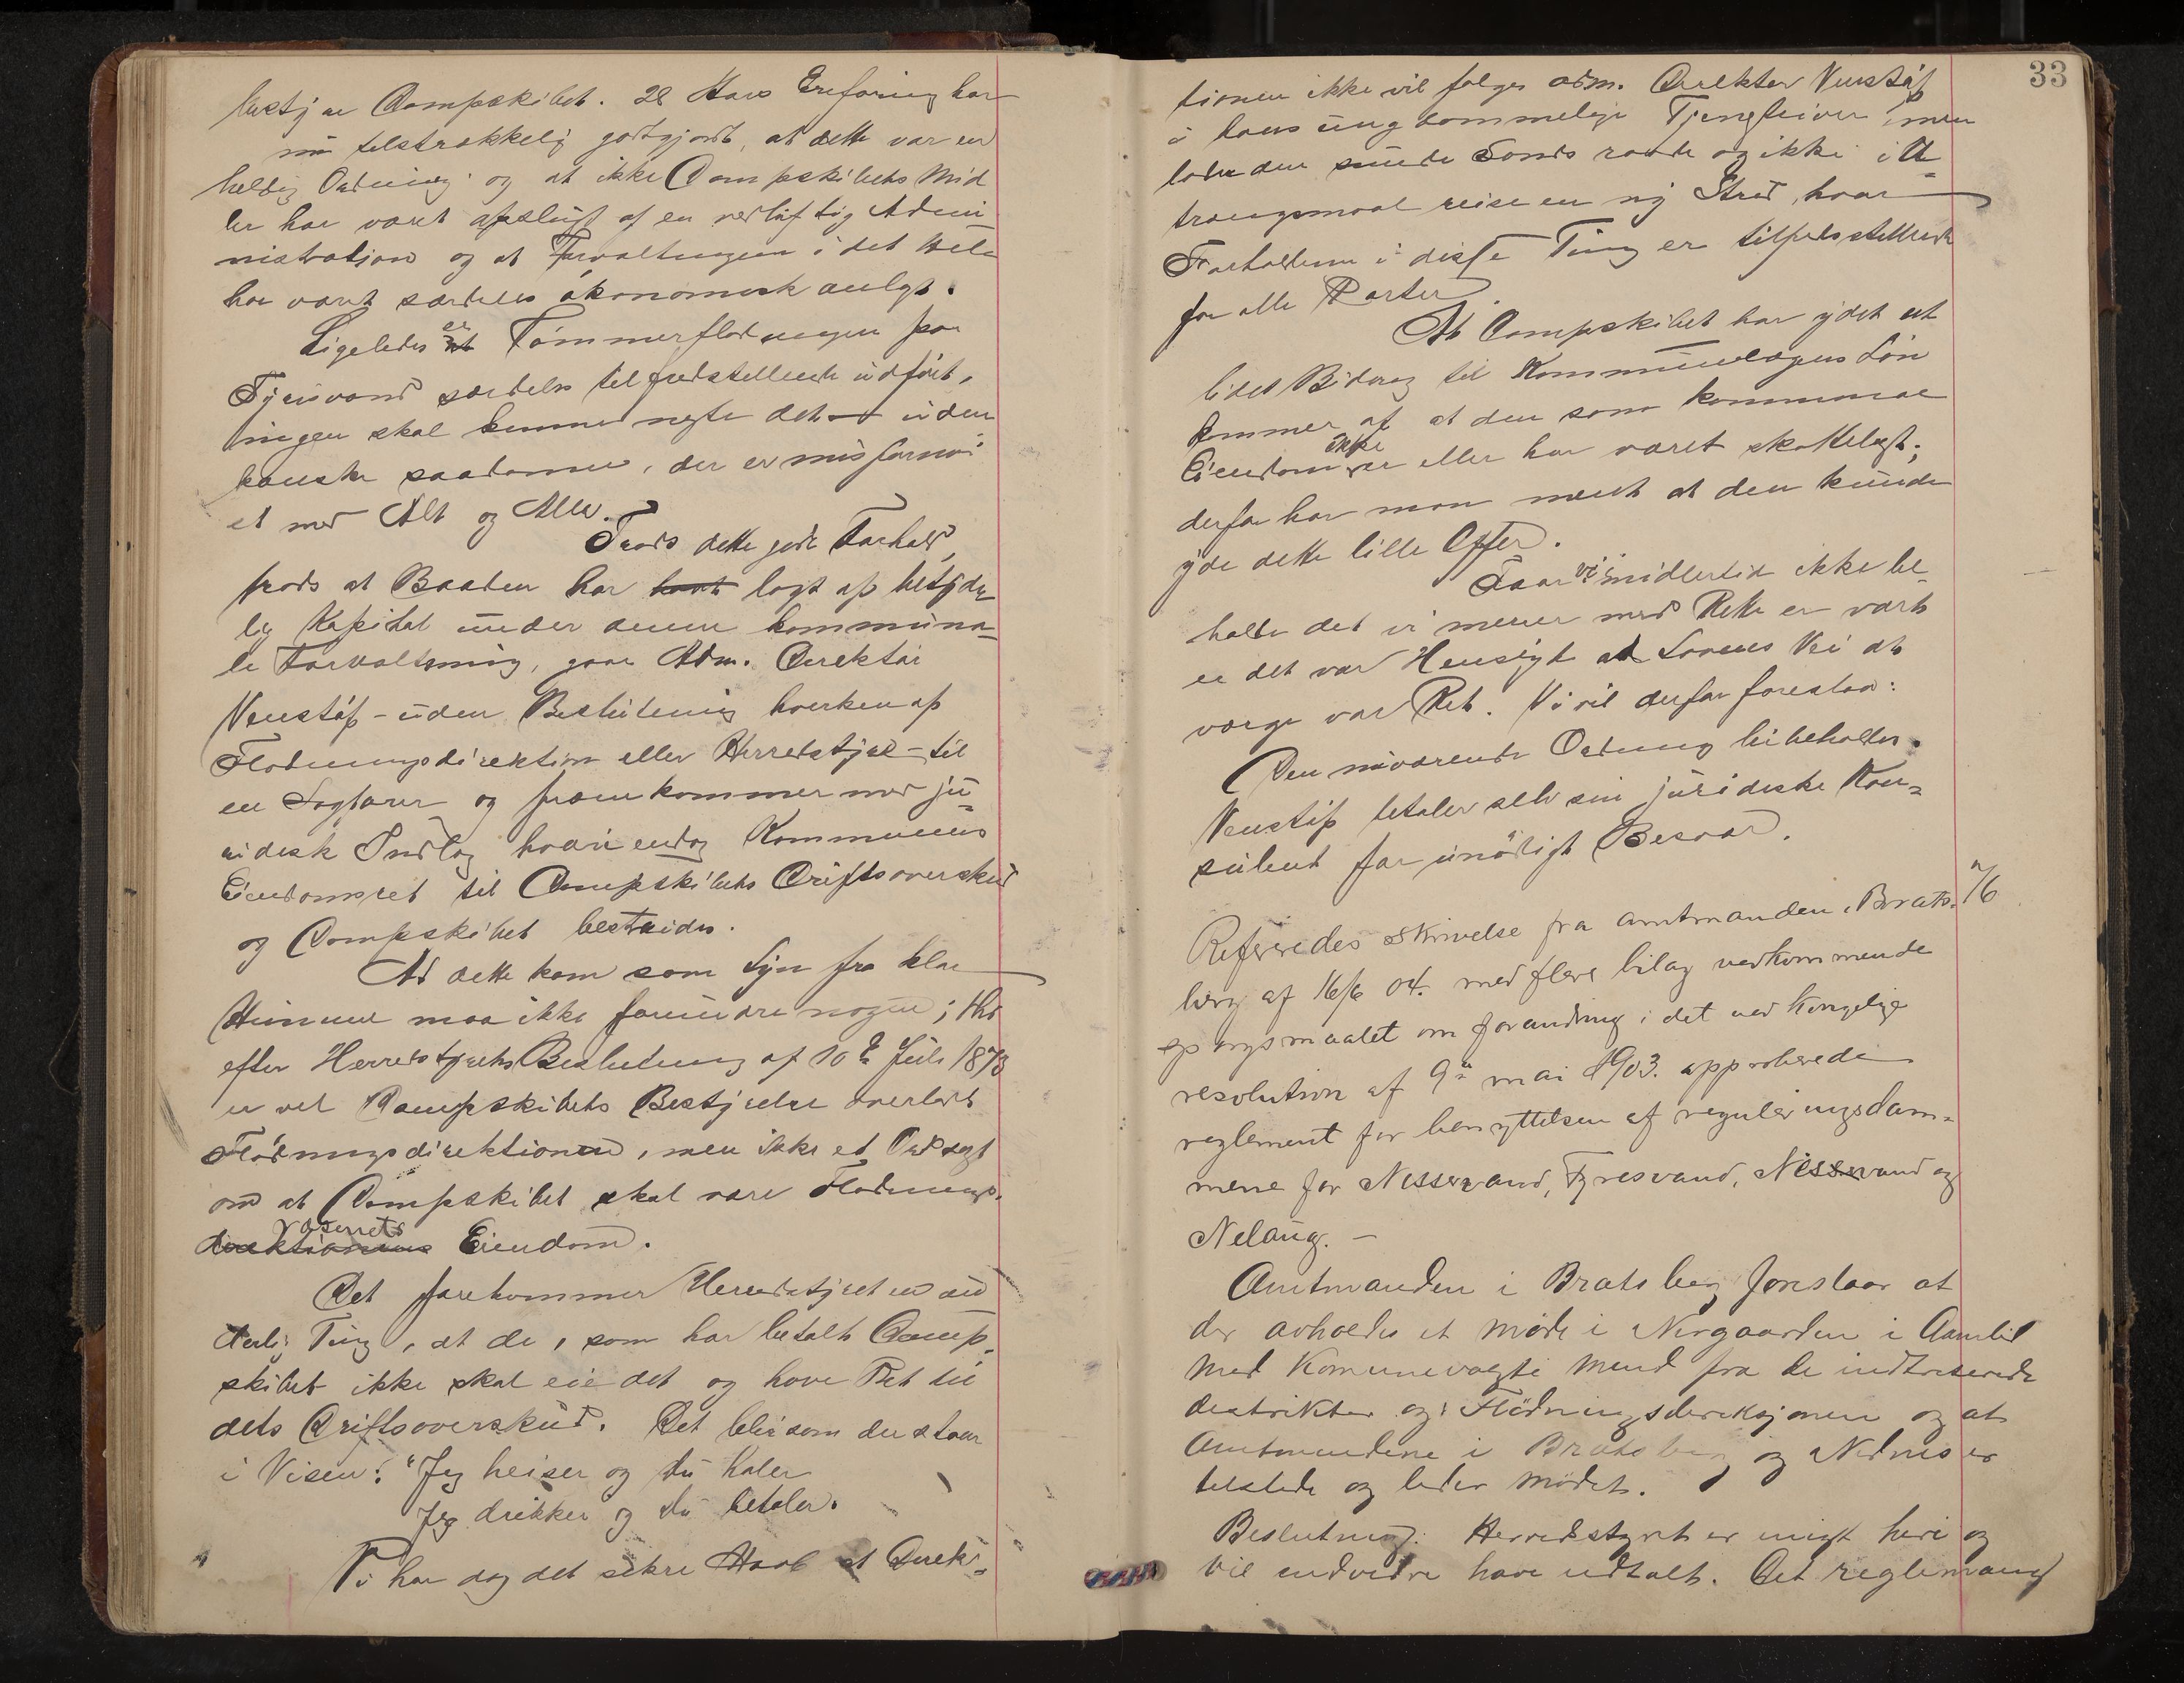 bestyre Dampskibet. 28 Aars Erfaring har
nu tilstrækkelig godtgjordt, at dette var en
heldig Ordning og at ikke Dampskibets Mid
ler har været opslugt af en vedløftig Admi
nistration og at Forvaltningen i det Hele
har været særdeles økonomisk anlagt.
Ligeledes er Tømmerflødningen paa
Fyrisvand særdeles tilfredstillende udført,
ingen skal kunne negte det – uden
kanske saadanne, der er misfornøi
et med Alt og Alle.
Trods dette gode Forhold,
trods at Baaden har lagt op betyde
lig Kapital under denne kommuna-
le Forvaltning, gaar Adm. Direktør
Venstøp – uden Beslutning hverken af
Flødningsdirektion eller Herredstyre – til
en Sagfører og fremkommer med ju-
ridisk Indlæg hvori endog Kommunens
Eiendomsret til Dampskibets Driftsoverskud
og Dampskibet bestrides.
At dette kom som Lyn fra klar
Himmel maa ikke forundre nogen; thi
efter Herredstyrets Beslutning af 10de Juli 1873
er vel Dampskibets Bestyrelse overladt
Flødningsdirektionen, men ikke et Ord sagt
om at Dampskibet skal være Flødnings-
væsenets
direktionens Eiendom.
Det forekommer Herredstyret en un
derlig Ting, at de, som har betalt Damp-
skibet ikke skal eie det og have Ret til
dets Driftsoverskud. Det blir som der staar
i Visen: "Jeg heiser og du haler
Jeg drikker og du betaler.
Vi har dog det sikre Haab at Direk-
33
tionen ikke vil følge adm. Direktør Venstøp
i hans ungdommelige Tjenstiver, men
lader den sunde Sands raade og ikke i U-
trængsmaal reise en ny Strid, hvor
Forholdene i disse Ting er tilfredsstillende
for alle Parter.
At Dampskibet har ydet et
lidet Bidrag til Kommunelægens Løn
kommer af at den som kommunal
ikke
Eiendom er eller har været skattelagt;
derfor har man ment at den kunde
yde dette lille Offer.
Faar vi imidlertid ikke be-
holde det vi mener med Rette er vort
er det vor Hensigt ad Lovens Vei at
værge vor Ret. Vi vil derfor foreslaa:
Den nuværende Ordning bibeholdes.
Venstøp betaler selv sin juridiske Kon-
sulent for unødigt Besvær.
Refereredes skrivelse fra amtmanden i Brats-
berg af 16/6 04. med flere bilag vedkommende
spørgsmaalet om forandring i det ved kongelige
resolution af 9de mai 1903. approberede
reglement for benyttelsen af reguleringsdam-
mene for Nisservand, Fyresvand, Nisservand og
Nelaug. –
Amtmanden i Bratsberg foreslaar at
der avholdes et møde i Nergaarden i Aamlid
med Komunevalgte mend fra de indtreserede
destrikter og Flødningsdireksjonen og at
Amtmendene i Bratsberg og Nedenes er
tilstede og leder mødet.
Beslutning: Herredstyret er enigt heri og
vil endvidre have udtalt. Det reglemang